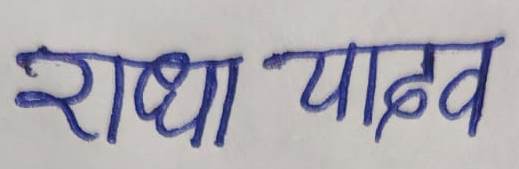 राधा यादव